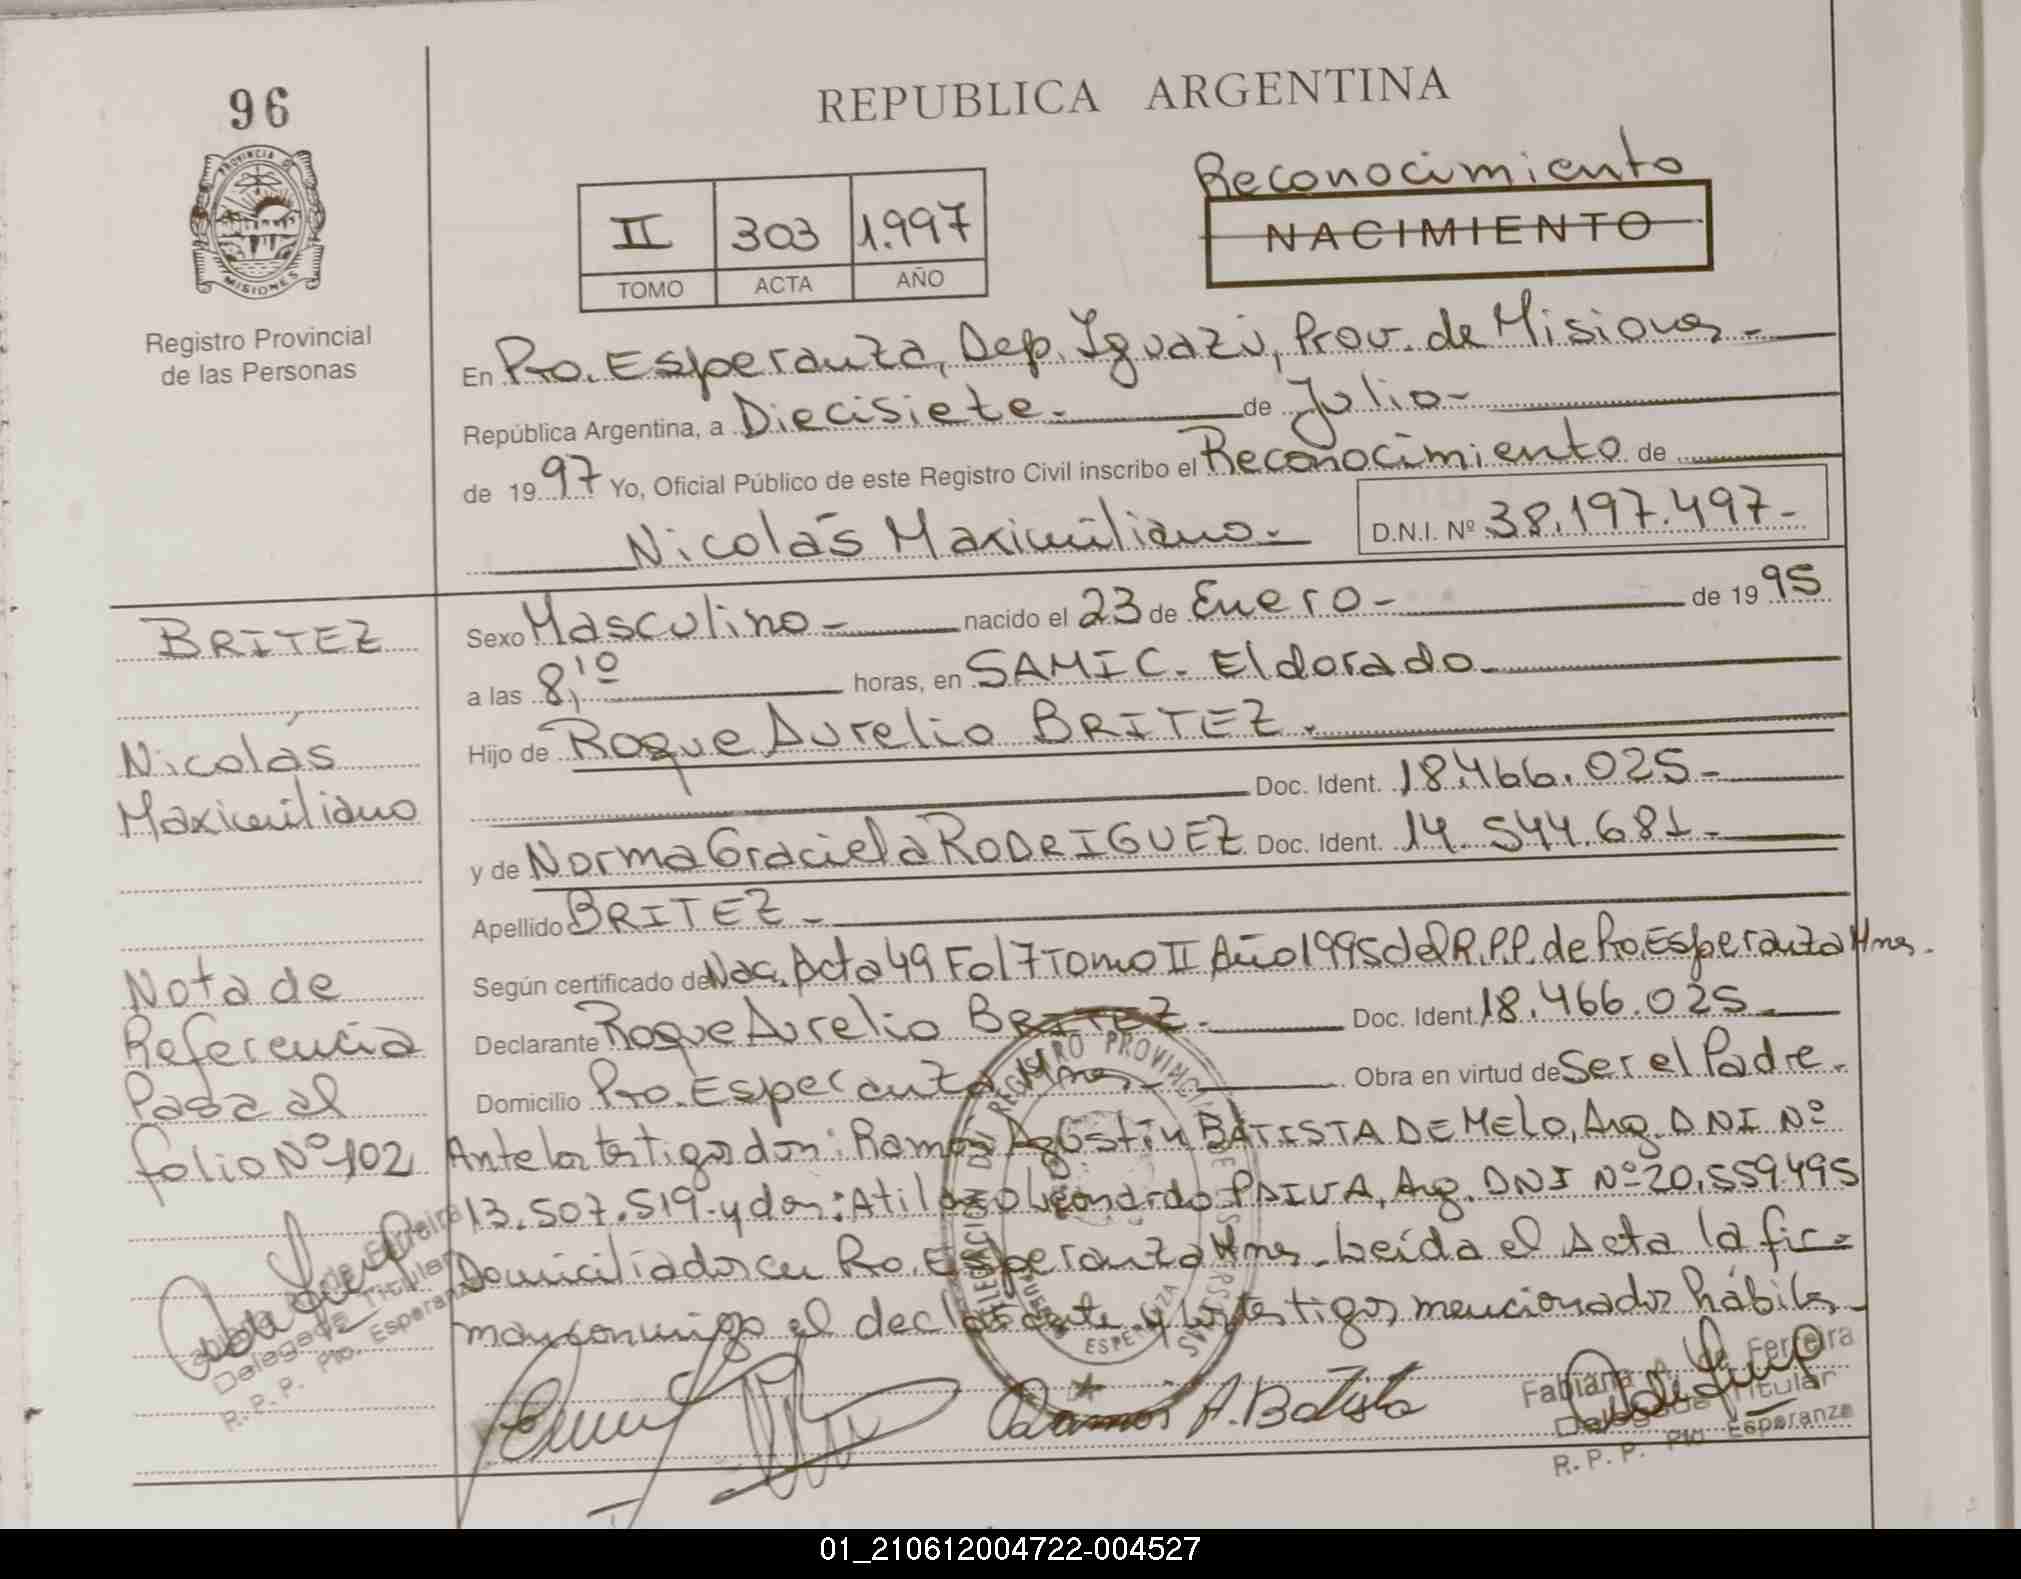 96
REPUBLICA ARGENTINA
PROVINCIA DE
MISIONES
Registro Provincial
de las Personas
II 303 1.997
TOMO ACTA AÑO
Reconocimiento
NACIMIENTO
En Pto. Esperanza, Dep. Iguazú, Prov. de Misiones.-
República Argentina, a Diecisiete.- de Julio-
de 1997 Yo, Oficial Público de este Registro Civil inscribo el Reconocimiento de
Nicolás Maximiliano.- D.N.I. Nº 38.197.497-
BRITEZ
Nicolás
Maximiliano
Nota de
Referencia
Pasa al
folio Nº 102
Sexo Masculino- nacido el 23 de Enero- de 1995
a las 8,10 horas, en SAMIC. Eldorado-
Hijo de Roque Aurelio BRITEZ.
Doc. Ident. 18.466.025-
y de Norma Graciela RODRIGUEZ Doc. Ident. 14.544.681-
Apellido BRITEZ-
Según certificado de Nac. Acta 49 Fol 7 Tomo II Año 1995 del R.P.P. de Pto. Esperanza Mnes.
Declarante Roque Aurelio BRITEZ.- Doc. Ident. 18.466.025-
Domicilio Pto. Esperanza Mnes- Obra en virtud de Ser el Padre.
Ante los testigos don: Ramon Agustín BATISTA DE MELO, Arg. DNI Nº
13.507.519- y don: Atilano Leonardo PAIVA, Arg. DNI Nº 20.559.495
Domiciliados en Pto. Esperanza Mnes. Leída el Acta la fir-
man conmigo el declarante y los testigos mencionados hábiles-
DELEGACION DEL REGISTRO PROVINCIAL DE LAS PERSONAS
ESPERANZA
Ramos A. Batista
Fabiana A. de Ferreira
Delegada Titular
R. P. P. Pto. Esperanza
de Ferreira
Delegada Titular
R. P. P. Pto. Esperanza
01_210612004722-004527